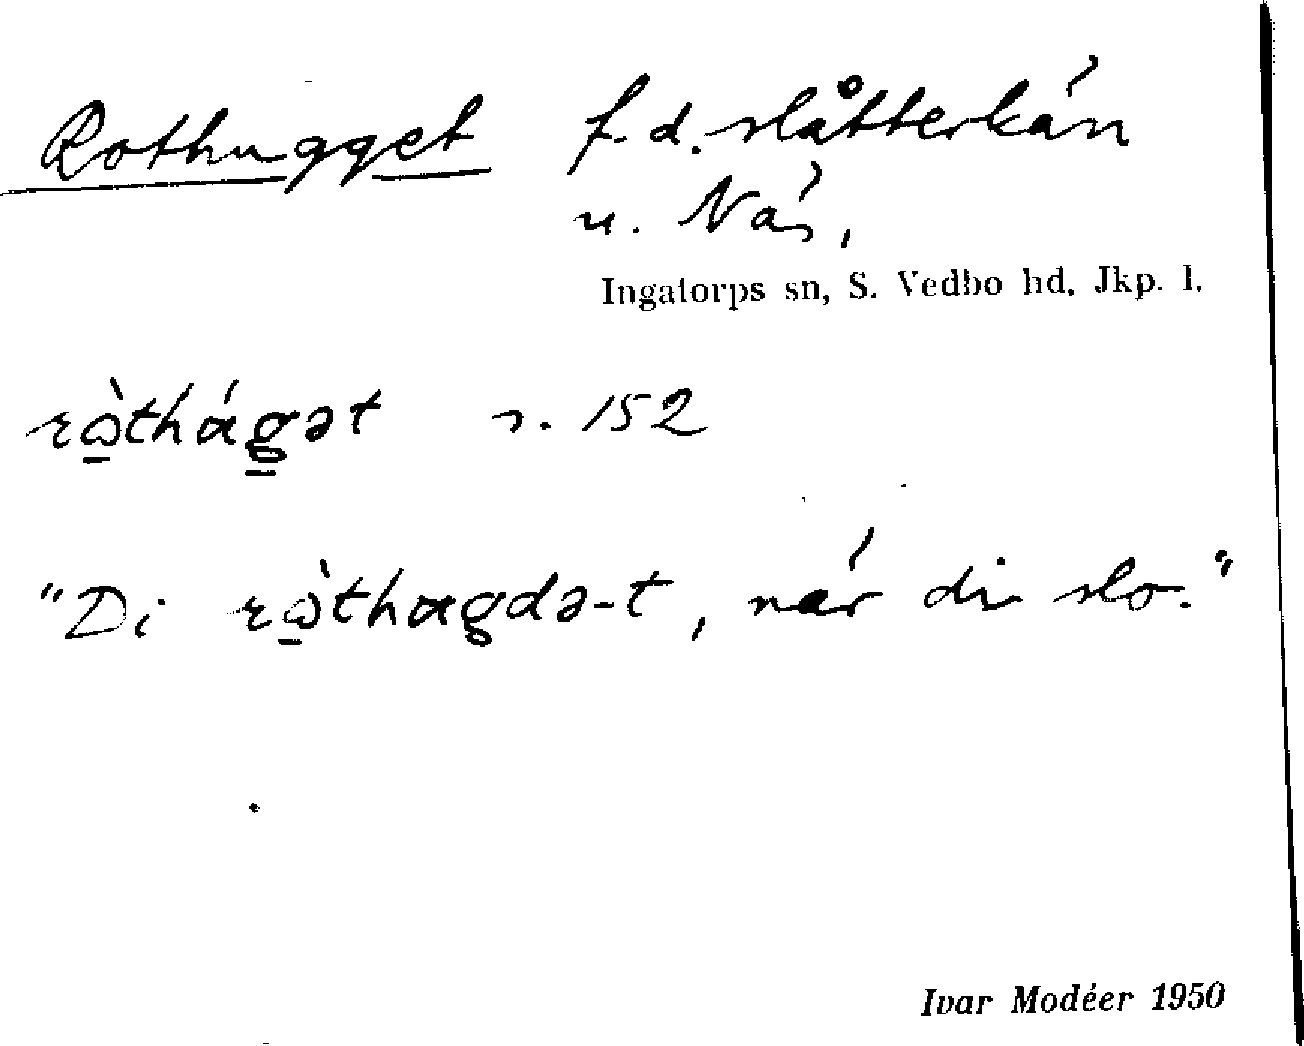 Rothugget f.d. slåtterkärr
u. Näs,
Ingatorps sn, S. Vedbo hd, Jkp. l.
rὼthág̲ət s. 152
"Di rὼthagdə-t, när di slo."
Ivar Modéer 1950